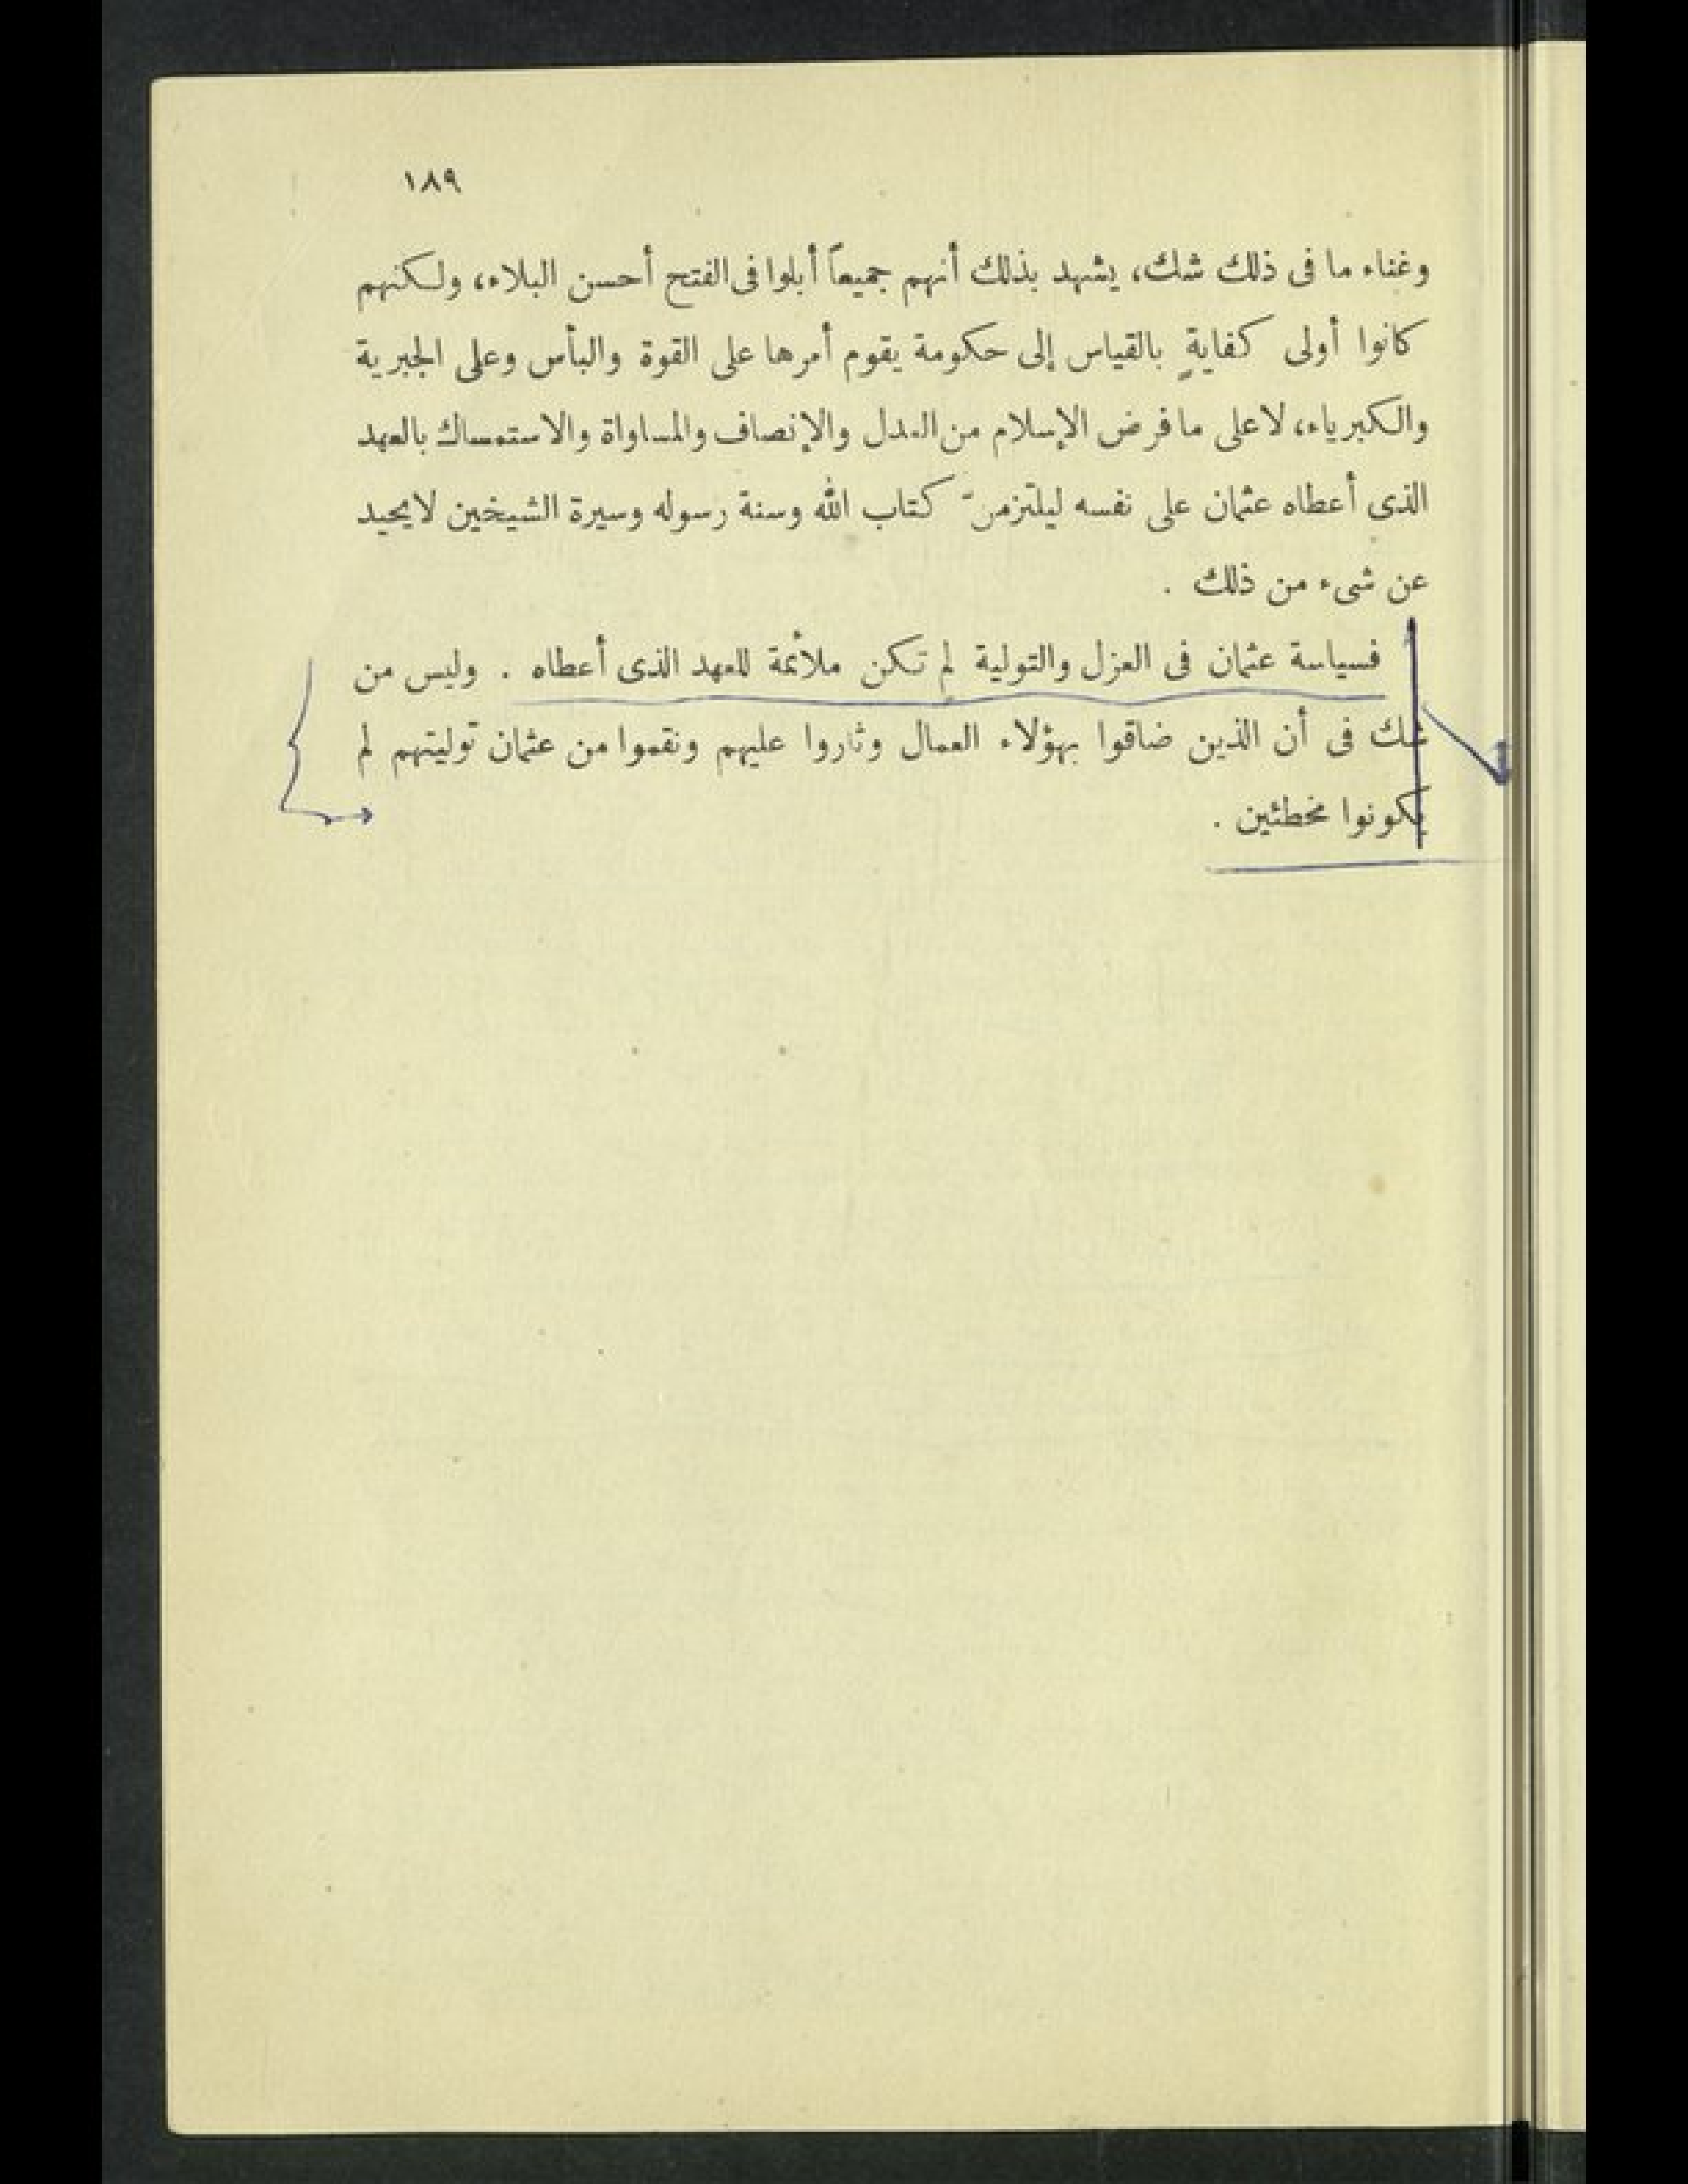 ١٨٩
وغناء ما فى ذلك شك، يشهد بذلك أنهم جميعاً أبلوا فى الفتح أحسن البلاء، ولكنهم
كانوا أولى كفايةٍ بالقياس إلى حكومة يقوم أمرها على القوة والبأس وعلى الجبرية
والكبرياء، لا على ما فرض الإسلام من العدل والإنصاف والمساواة والاستمساك بالعهد
الذى أعطاه عثمان على نفسه ليلتزمنّ كتاب الله وسنة رسوله وسيرة الشيخين لا يحيد
عن شىء من ذلك .
فسياسة عثمان فى العزل والتولية لم تكن ملائمة للعهد الذى أعطاه . وليس من
شك فى أن الذين ضاقوا بهؤلاء العمال وثاروا عليهم ونقموا من عثمان توليتهم لم
يكونوا مخطئين .